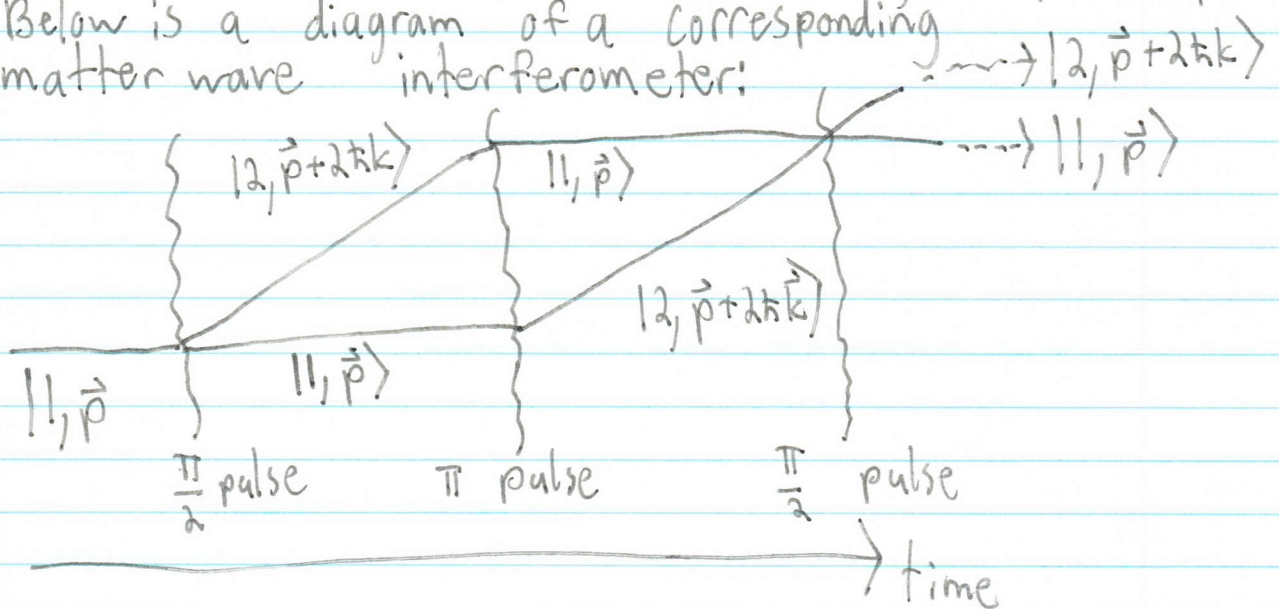 Below is a diagram of a corresponding
matter wave interferometer:
|2, p⃗+2ħk⟩
|1, p⃗⟩
|2, p⃗+2ħk⟩
|1, p⃗⟩
|2, p⃗+2ħk⃗⟩
|1, p⃗⟩
|1, p⃗
π/2 pulse π pulse π/2 pulse
time